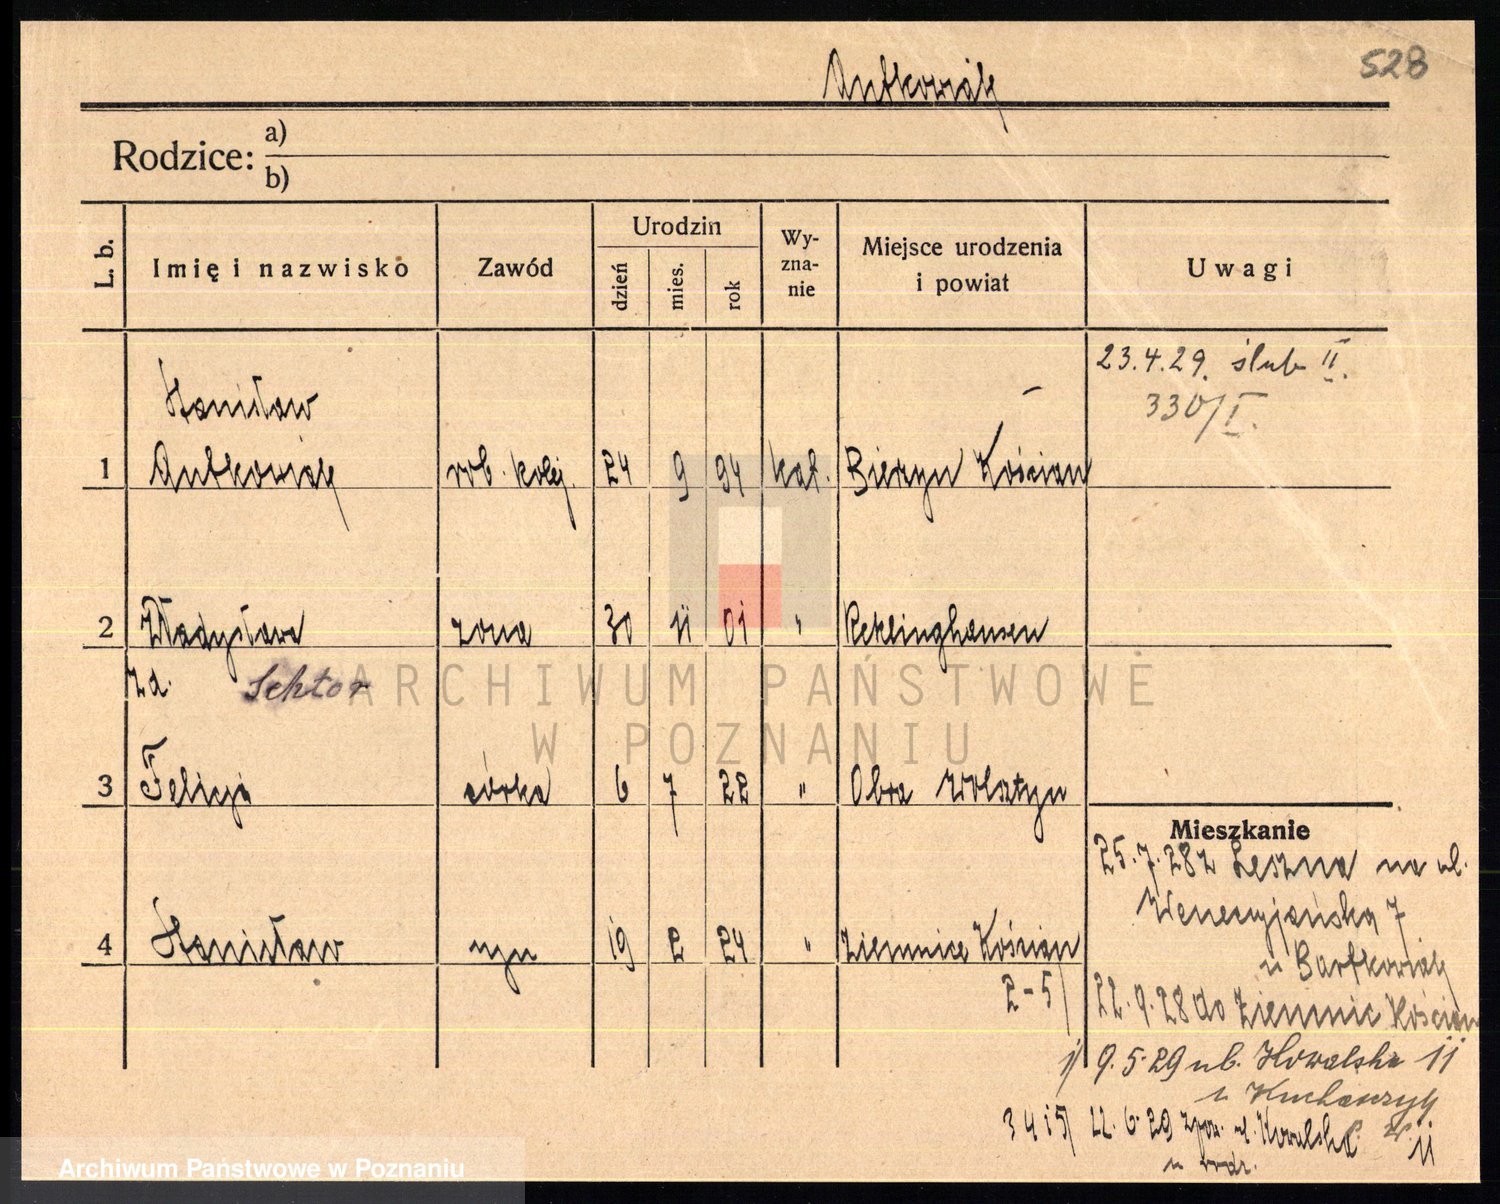 528
Antkowiak
Rodzice: a)
b)
L. b. Imię i nazwisko Zawód Urodzin dzień mies. rok Wyzna-nie Miejsce urodzenia i powiat Uwagi
23.4.29. ślub II.
330/I.
Stanisław
1 Antkowiak rob. kolej. 24 9 94 kat. Bieżyn Kościan
2 Władysława żona 30 11 01 " Reklinghausen
zd. Sektor
ARCHIWUM PAŃSTWOWE
W POZNANIU
3 Felicja córka 6 7 22 " Obra Wolsztyn
Mieszkanie
25.7.28 z Leszna na ul.
Wenecyjańska 7
u Bartkowiak
4 Stanisław syn 19 2 24 " Ziemnice Kościan
2-5/ 22.9.28 do Ziemnic Kościan
1/ 9.5.29 ul. Kowalska 11
u Kucharzyk
3 4 i 5/ 22.6.29 ul. Kowalska 11
u
Archiwum Państwowe w Poznaniu